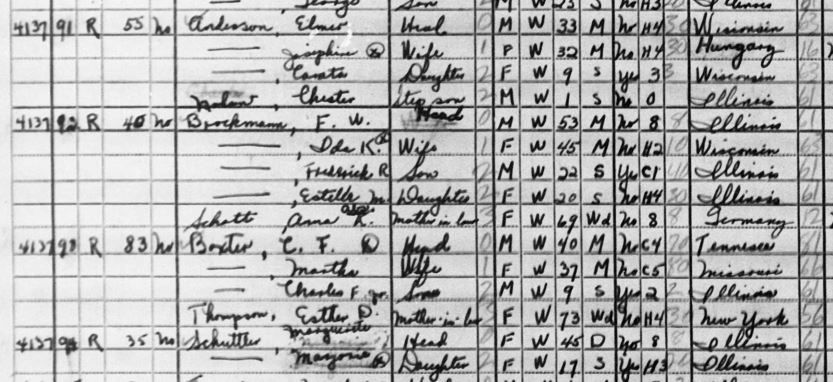 Son M W 23 S No H3 Illinois 61
4137 91 R 55 No Anderson, Elmer Head 0 M W 33 M No H4 30 Wisconsin 63
—, Josephine ⓧ Wife 1 F W 32 M No H4 30 Hungary 16
—, Daughter 2 F W 9 S Yes 3 3 Wisconsin 63
Nolan, Chester Step son 2 M W 1 S No 0 Illinois 61
4137 92 R 40 No Brockmann, F. W. Head 0 M W 53 M No 8 8 Illinois 61
—, Ida K. Wife 1 F W 45 M No H2 10 Wisconsin 63
—, Frederick R Son 2 M W 22 S Yes C1 40 Illinois 61
—, Estelle M. Daughter 2 F W 20 S No H4 30 Illinois 61
Schott, Anna K. Mother in law 3 F W 69 Wd No 8 8 Germany 12
4137 93 R 83 No Baxter, C. F. ⓧ Head 0 M W 40 M No C4 70 Tennessee 81
—, Martha Wife 1 F W 37 M No C5 80 Missouri 66
—, Charles F. Jr. Son 2 M W 9 S Yes 2 2 Illinois 61
Thompson, Esther D. Mother-in-law 3 F W 73 Wd No H4 30 New York 56
4137 94 R 35 No Schuttler, Marguerite Head 0 F W 45 D No 8 8 Illinois 61
—, Marjorie ⓧ Daughter 2 F W 17 S Yes H3 Illinois 61